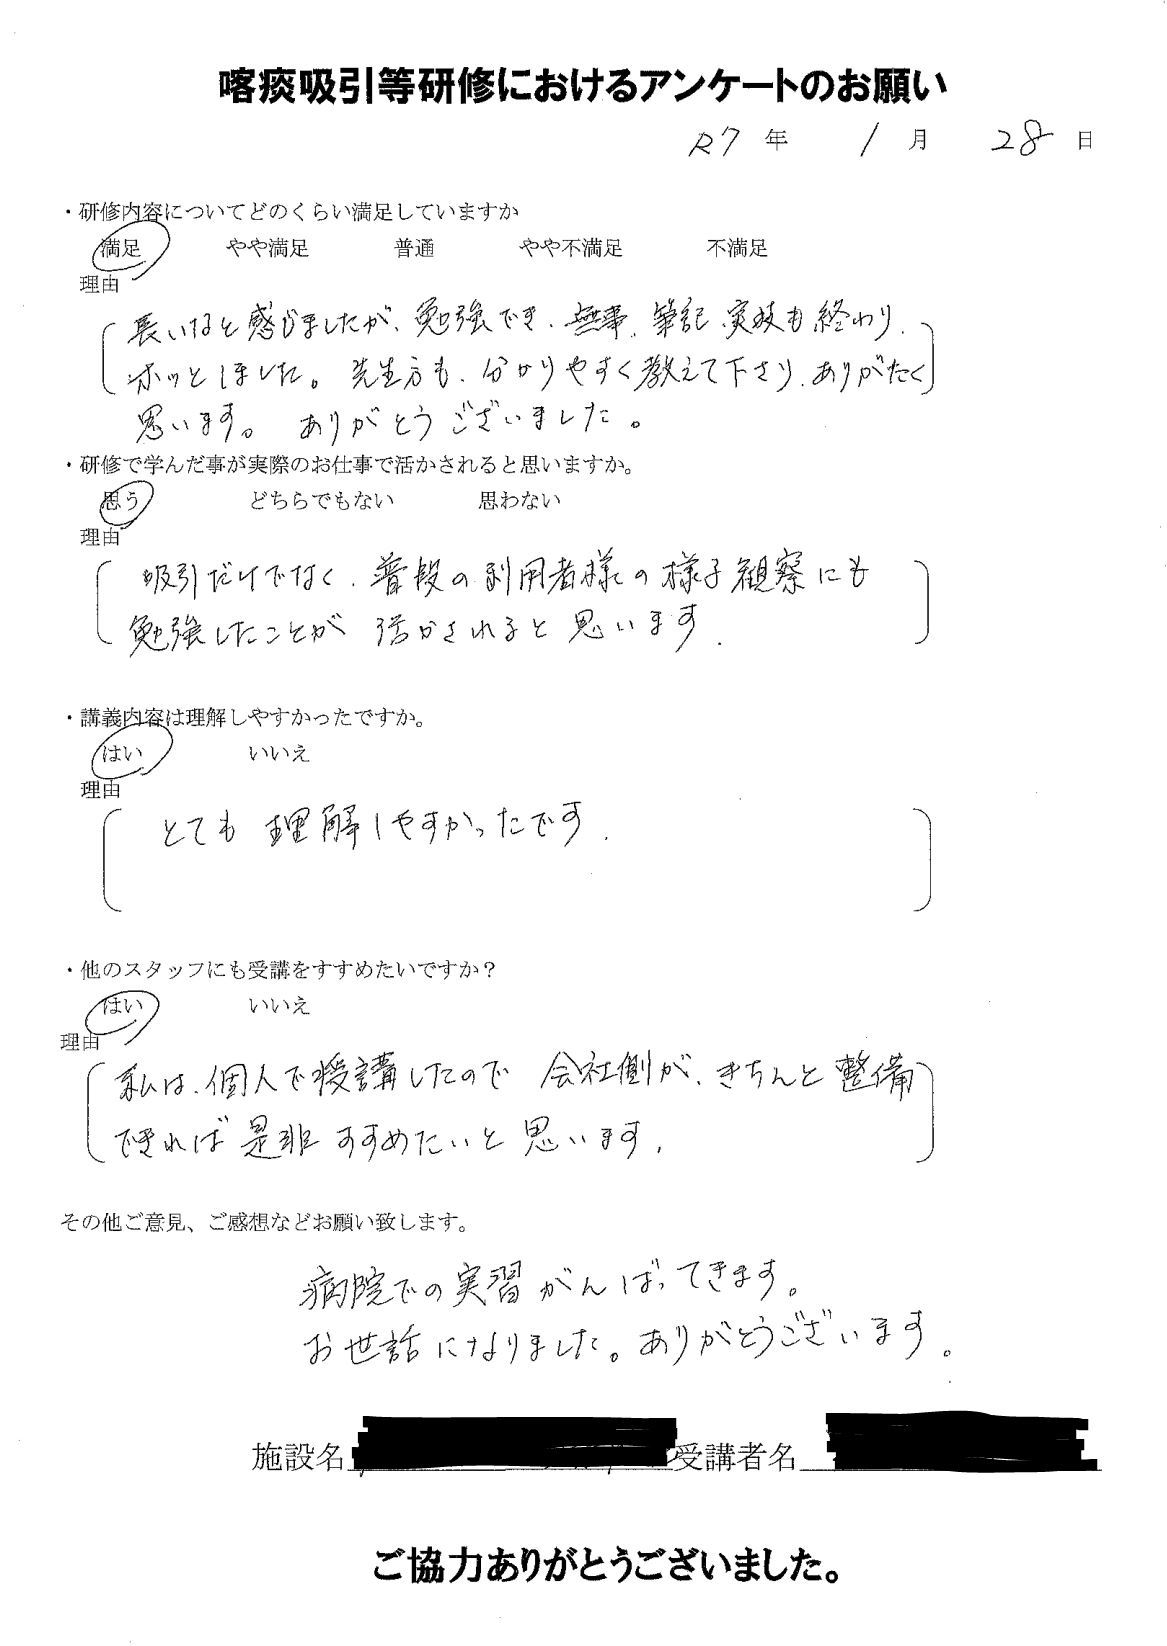 喀痰吸引等研修におけるアンケートのお願い
R7 年 1 月 28 日
・研修内容についてどのくらい満足していますか
満足 やや満足 普通 やや不満足 不満足
理由
長いなと感じましたが、勉強でき、無事、筆記、実技も終わり、
ホッとしました。先生方も、分かりやすく教えて下さり、ありがたく
思います。ありがとうございました。
・研修で学んだ事が実際のお仕事で活かされると思いますか。
思う どちらでもない 思わない
理由
吸引だけでなく、普段の利用者様の様子観察にも
勉強したことが活かされると思います。
・講義内容は理解しやすかったですか。
はい いいえ
理由
とても理解しやすかったです。
・他のスタッフにも受講をすすめたいですか？
はい いいえ
理由
私は、個人で受講したので会社側が、きちんと整備
できれば是非すすめたいと思います。
その他ご意見、ご感想などお願い致します。
病院での実習がんばってきます。
お世話になりました。ありがとうございます。
施設名 受講者名
ご協力ありがとうございました。